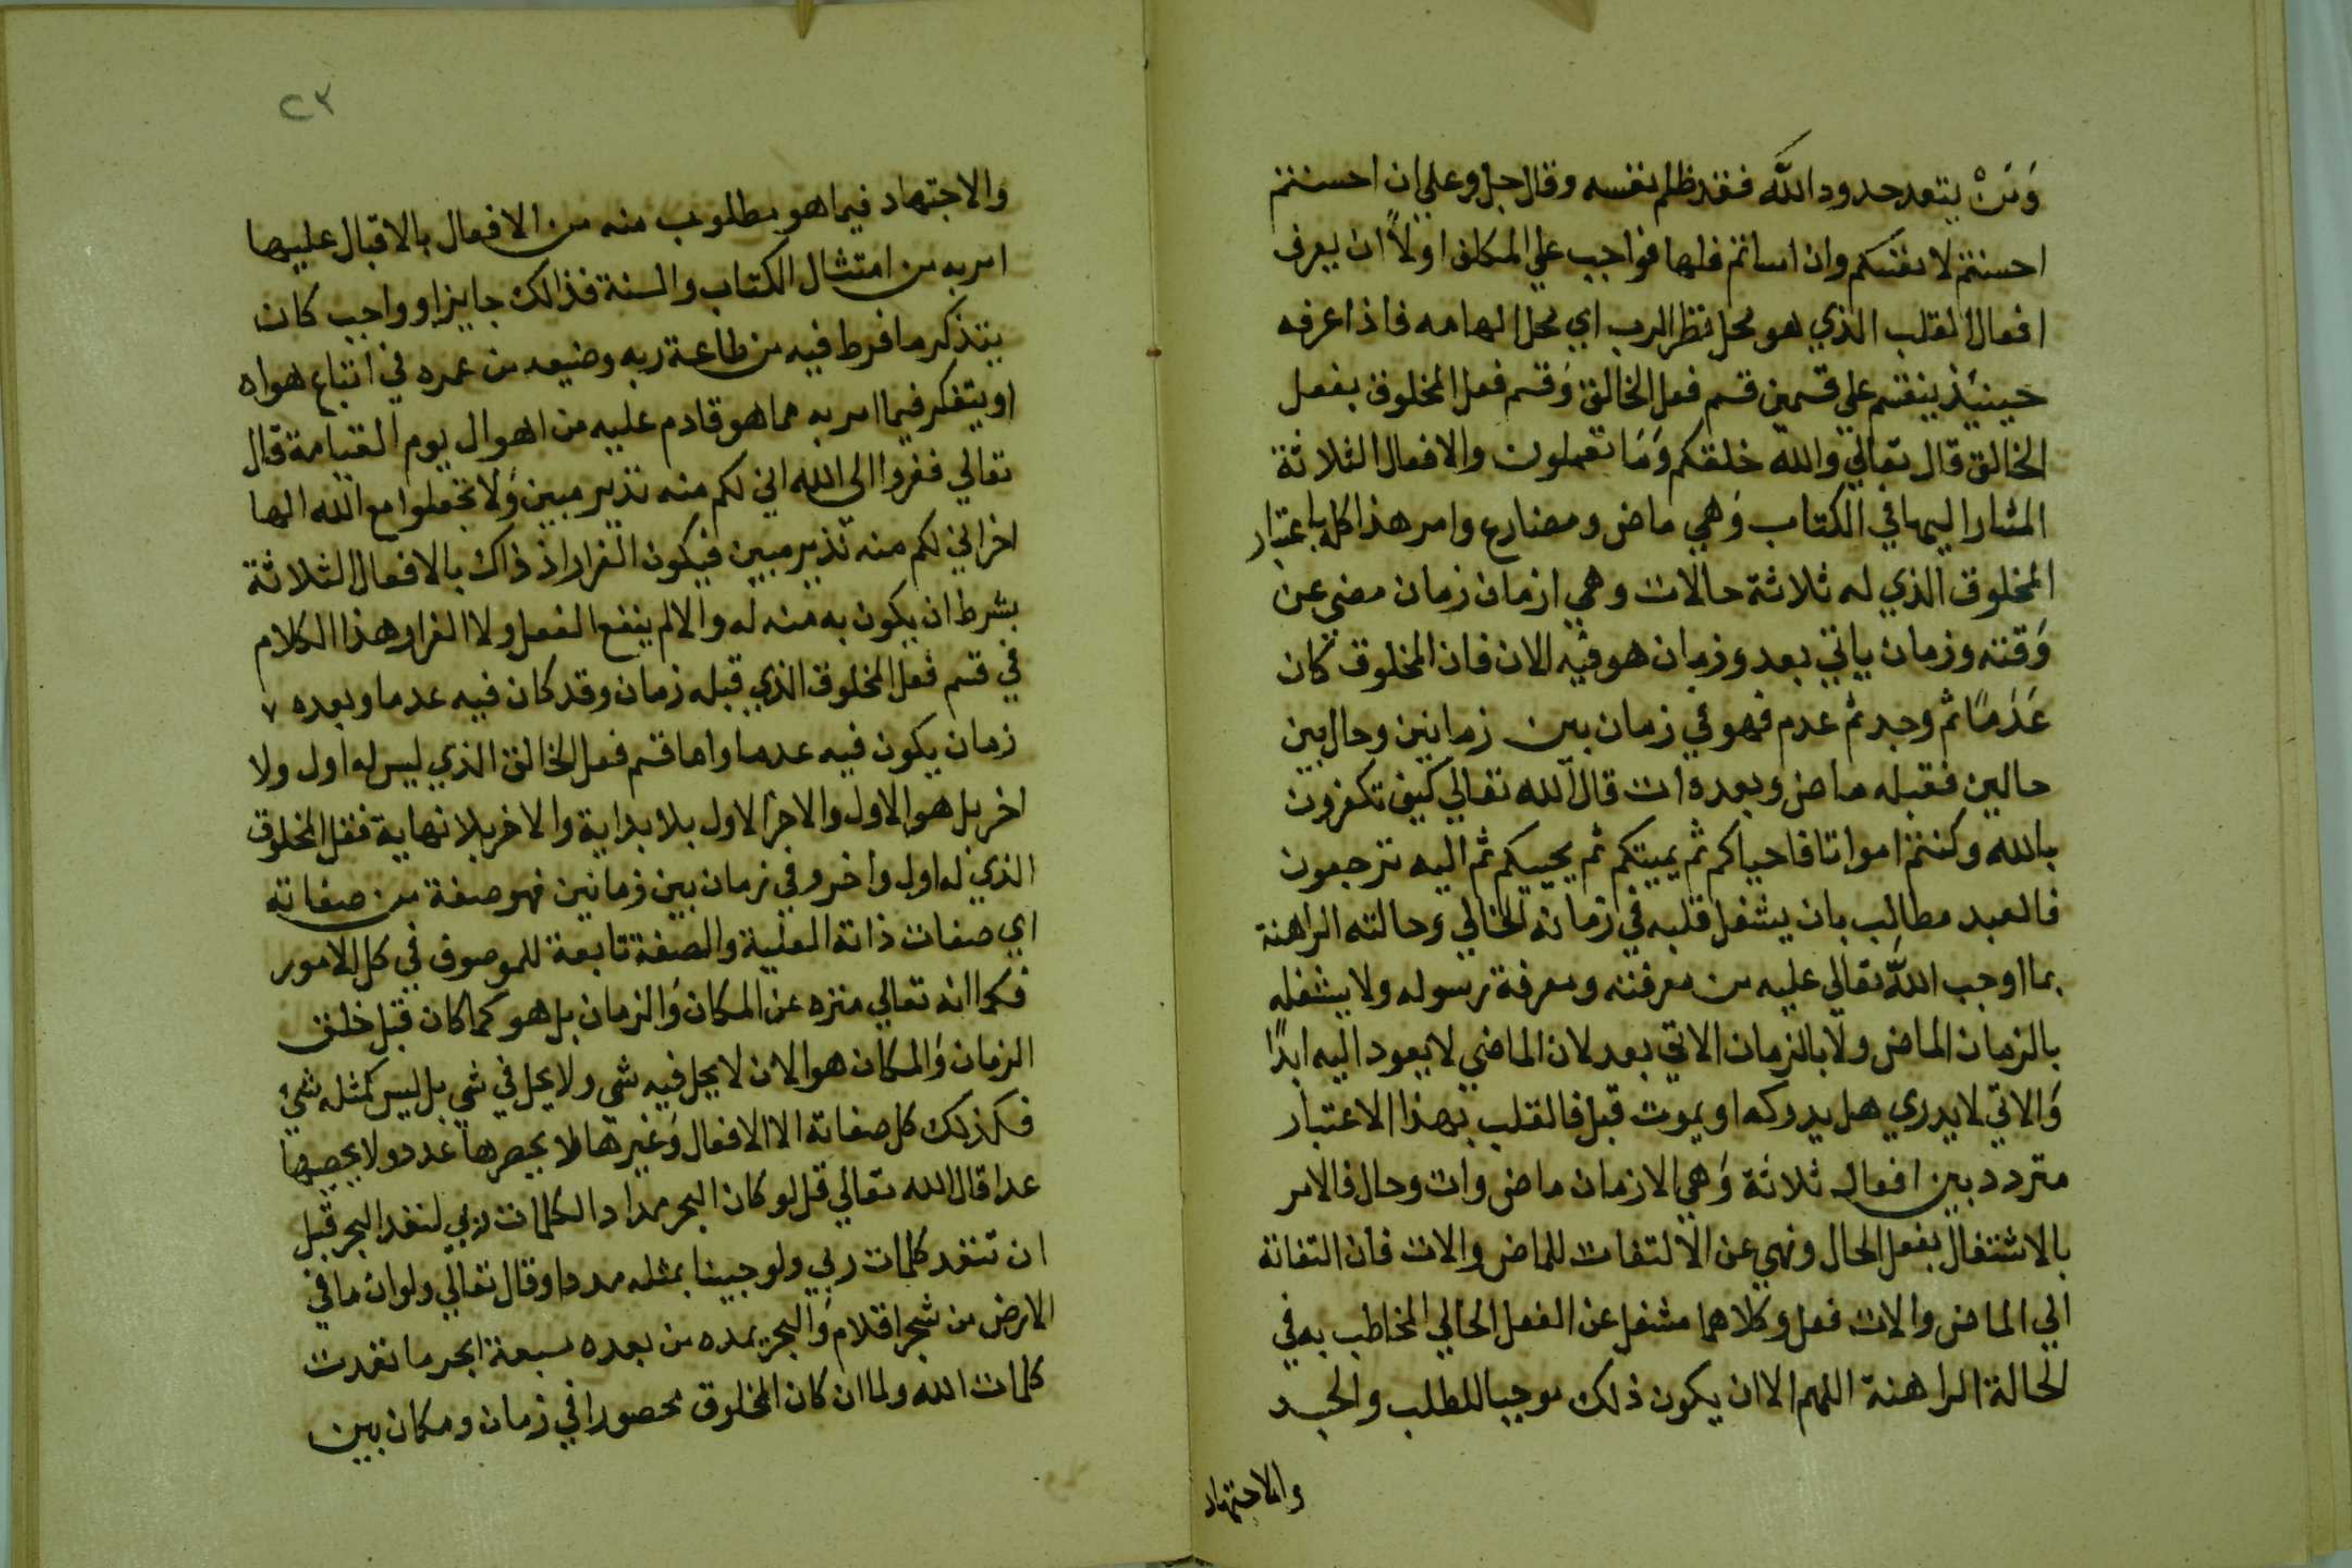 وَمَنْ يتعد حدود الله فقد ظلم نفسه وقال جل وعلي ان احسنتم
احسنتم لانفسكم وان اساتم فلها فواجب علي المكلف اولاً ان يعرف
افعال القلب الذي هو محل نظر الرب اي محل الهامه فاذا عرفه
حينيئذ ينقسم علي قسمين قسم فعل الخالق وَقسم فعل المخلوق بفعل
الخالق قال تعالي والله خلقكم وَمَا تعملون والافعال الثلاثة
المشار اليها في الكتاب وَهي ماض ومضارع وامر هذا كله باعتبار
المخلوق الذي له ثلاثة حالات وهي ازمان زمان مضي عن
وَقته وزمان ياتي بعد وزمان هو فيه الان فان المخلوق كان
عَدَمًا ثم وجد ثم عدم فهو في زمان بين زمانين وحال بين
حالين فقبله ماض وبعده ات قال الله تعالي كيف تكفرون
بالله وكنتم امواتا فاحياكم ثم يميتكم ثم يحييكم ثم اليه ترجعون
فالعبد مطالب بان يشغل قلبه في زمانه الحالي وحالته الراهنة
بما اوجب الله تعالي عليه من معرفته ومعرفة رسوله ولا يشغله
بالزمان الماض ولا بالزمان الاتي بعد لان الماضي لا يعود اليه ابدًا
وَالاتي لا يدري هل يدركه او يموت قبل فالقلب بهذا الاعتبار
متردد بين افعال ثلاثة وَهي الازمان ماض وات وحال فالامر
بالاشتغال بفعل الحال ونهي عن الالتفات للماض والات فان التفاته
الي الماض والات فعل وكلاهما مشغل عن الفعل الحالي المخاطب به في
الحالة الراهنة اللهم الا ان يكون ذلك موجبا للطلب والجد
والاجتهاد
٢٣
والاجتهاد فيما هو مطلوب منه من الافعال بالاقبال عليها
امر به من امتثال الكتاب والسنة فذالك جايز او واجب كان
يتذكر ما فرط فيه من طاعة ربه وضيعه من عمره في اتباع هواه
او يتفكر فيما امر به مما هو قادم عليه من اهوال يوم القيامة قال
تعالي ففروا الى الله اني لكم منه نذير مبين وَلا تجعلوا مع الله الها
اخر اني لكم منه نذير مبين فيكون الفرار اذ ذاك بالافعال الثلاثة
بشرط ان يكون به منه له والا لم ينفع الفعل ولا الفرار وهذا الكلام
في قسم فعل المخلوق الذي قبله زمان وقد كان فيه عدما وبعده
زمان يكون فيه عدما واما قسم فعل الخالق الذي ليس له اول ولا
اخر بل هو الاول والاخر الاول بلا بداية والاخر بلا نهاية ففعل المخلوق
الذي له اول واخر وفي زمان بين زمانين فهو صفة من صفاته
اي صفات ذاته العلية والصفة تابعة للموصوف في كل الامور
فكما انه تعالي منزه عن المكان وَالزمان بل هو كما كان قبل خلق
الزمان وَالمكان هو الان لا يحل فيه شي ولا يحل في شي بل ليس كمثله شيء
فكذلك كل صفاته الا الافعال وَغيرها لا يحصرها عدد ولا يحصيها
عدا قال الله تعالي قل لو كان البحر مدادا لكلمات ربي لنفد البحر قبل
ان تنفد كلمات ربي ولو جيينا بمثله مددا وقال تعالي ولو ان ما في
الارض من شجر اقلام وَالبحر يمده من بعده سبعة ابحر ما نفدت
كلمات الله ولما ان كان المخلوق محصورا في زمان ومكان بين